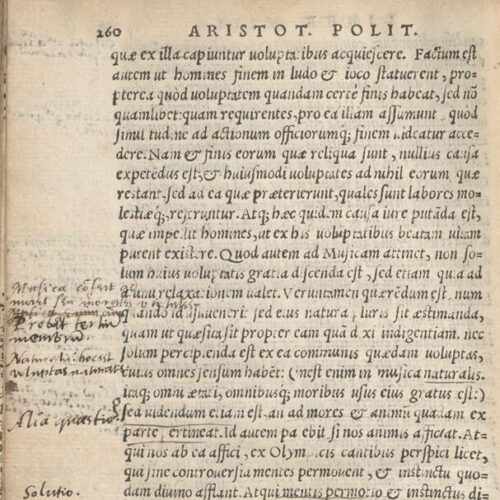 260 ARISTOT. POLIT.
quæ ex illa capiuntur voluptatibus acquiescere. Factum est
autem ut homines finem in ludo & ioco statuerent, pro-
pterea quòd voluptatem quandam certè finis habeat, sed nõ
quamlibet: quam requirentes, pro ea illam assumunt quòd
simul tud.ne ad actionum officiorumq; finem videatur acce-
dere. Nam & finis eorum quæ reliqua sunt, nullius causa
expetẽdus est; & huiusmodi voluptates ad nihil eorum quæ
restant, sed ad ea quæ præterierunt, quales sunt labores mo-
lestiæq;, referuntur. Atq; hæc quidem causa iure putãda est,
quæ impellit homines, ut ex his voluptatibus beatam vitam
parent existere. Quod autem ad Musicam attinet, non so-
lum huius voluptatis gratia discenda est, sed etiam quia ad
relaxationem valet. Veruntamen quærẽdum est, num
quando id inveneri: sed eius natura sit æstimanda,
quàm ut quæsita sit propter eam quã dixi indigentiam. nec
solum percipienda est ex ea communis quædam voluptas,
cuius omnes sensum habẽt: (inest enim in musica naturalis.
itaq; omni ætati, omnibusq; moribus usus eius gratus est:)
sed videndum etiam est an ad mores & animũ quadam ex
parte pertineat. Id autem patebit si nos animis afficiat. At-
qui nos ab ea affici, ex Olympicis cantibus perspici licet,
qui sine controversia mentes permovent, & instinctu quo-
dam divino afflant. Atqui mentis permotio & instinctus di
Musica
Probat tertiũ
membrũ.
Naturalis hoc est
voluptas naturalis
Alia quæstio
Solutio.